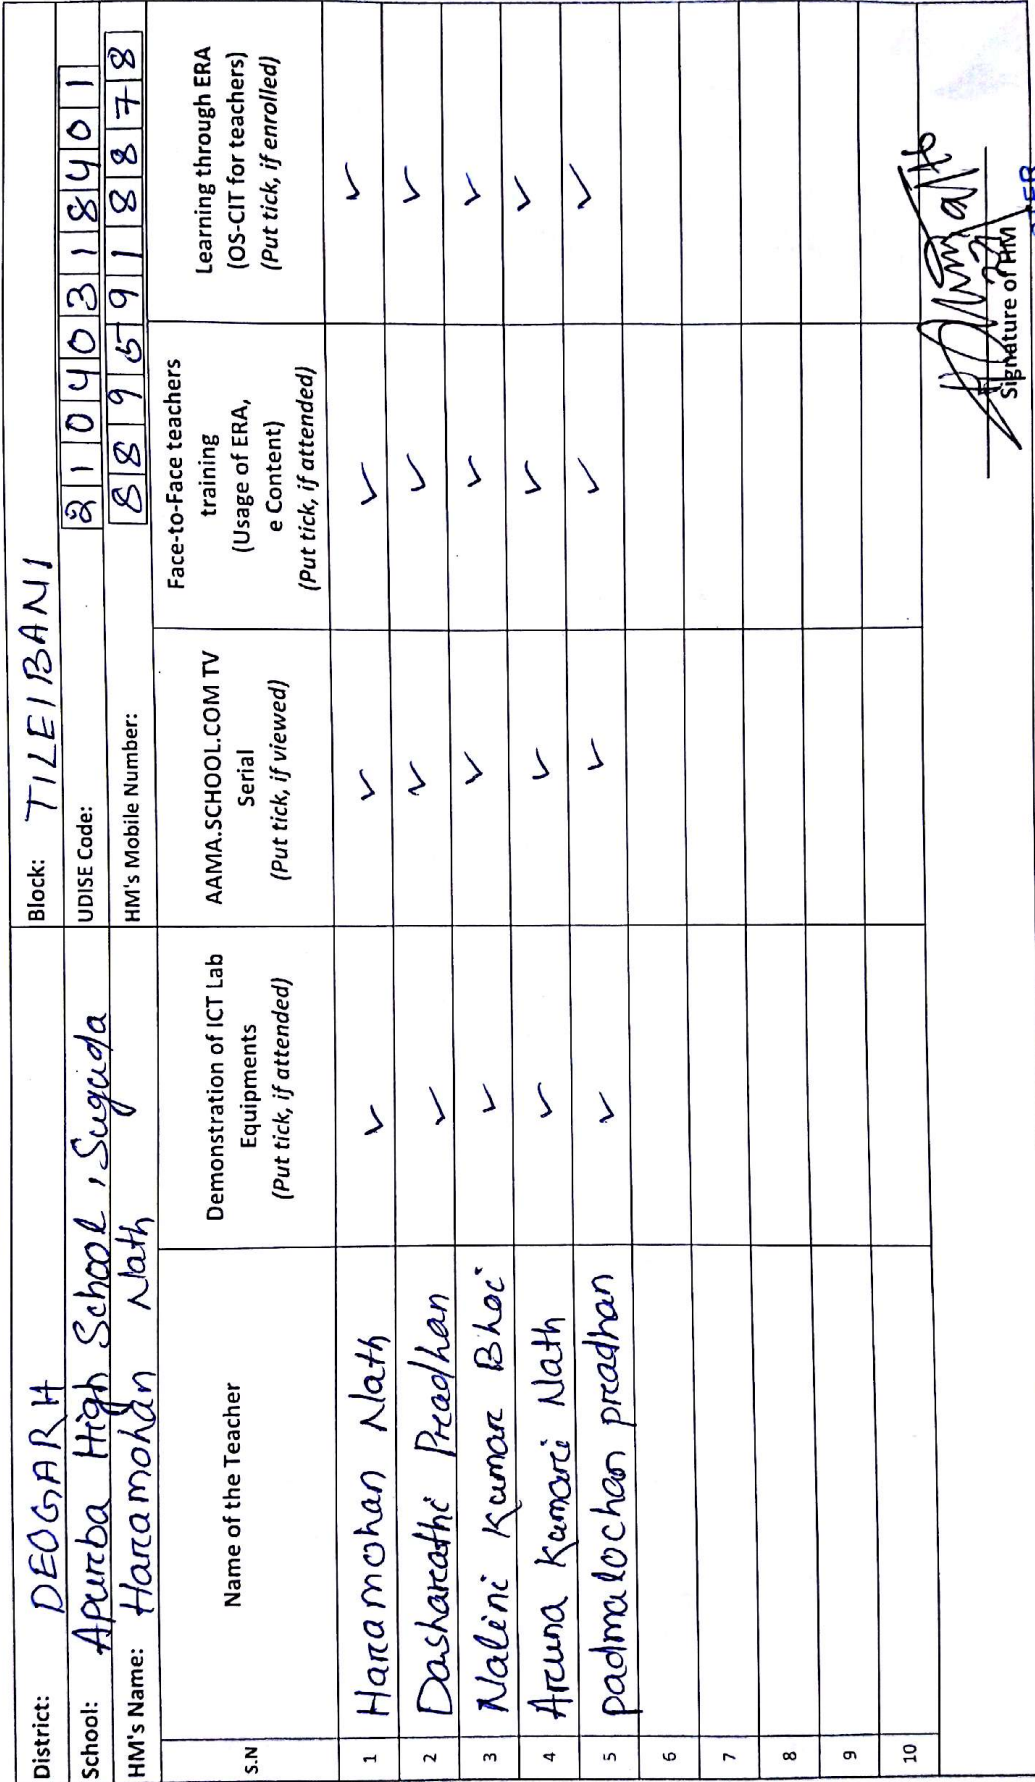 District: DEOGARH Block: TILEIBANI
School: Apurba High School, Suguda UDISE Code: 21040318401
HM's Name: Haramohan Nath HM's Mobile Number: 8895918878
S.N Name of the Teacher Demonstration of ICT Lab Equipments (Put tick, if attended) AAMA.SCHOOL.COM TV Serial (Put tick, if viewed) Face-to-Face teachers training (Usage of ERA, e Content) (Put tick, if attended) Learning through ERA (OS-CIT for teachers) (Put tick, if enrolled)
1 Haramohan Nath ✓ ✓ ✓ ✓
2 Dasharathi Pradhan ✓ ✓ ✓ ✓
3 Nalini Kumar Bhoi ✓ ✓ ✓ ✓
4 Aruna Kumari Nath ✓ ✓ ✓ ✓
5 padmalochan pradhan ✓ ✓ ✓ ✓
6
7
8
9
10
Signature of HM